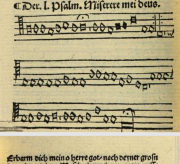 ¶ Der. l. Psalm. Miserere mei deus.
Erbarm dich mein o herre got/ nach deyner grosz